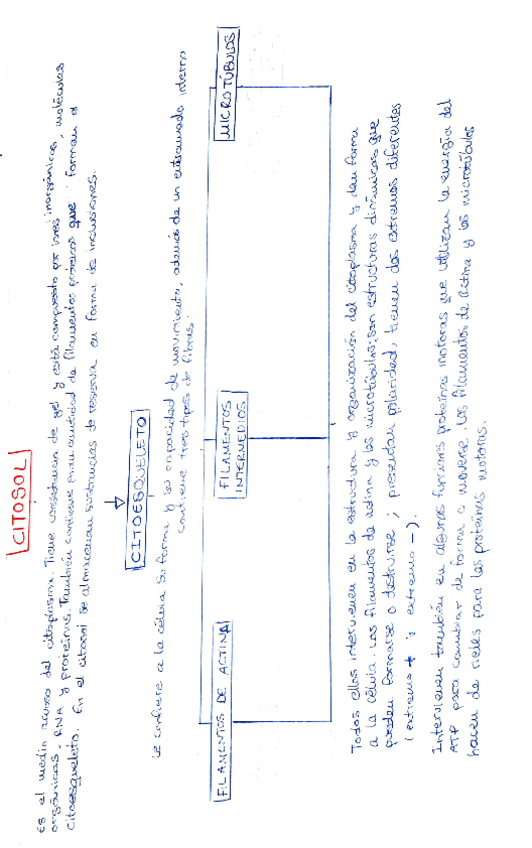 CITOSOL
Es el medio acuoso del citoplasma. Tiene consistencia de gel y está compuesto por iones inorgánicos, moléculas
orgánicas, RNA y proteínas. También contiene gran cantidad de filamentos proteicos que forman el
citoesqueleto. En el citosol se almacenan sustancias de reserva en forma de inclusiones.
CITOESQUELETO
Le confiere a la célula su forma y su capacidad de movimiento, además de un entramado interno
contiene tres tipos de fibras:
FILAMENTOS DE ACTINA
FILAMENTOS
INTERMEDIOS
MICROTÚBULOS
Todos ellos intervienen en la estructura y organización del citoplasma y dan forma
a la célula. Los filamentos de actina y los microtúbulos, son estructuras dinámicas que
pueden formarse o destruirse; presentan polaridad, tienen dos extremos diferentes
(extremo + y extremo -).
Intervienen también en algunas funciones proteínas motoras que utilizan la energía del
ATP para cambiar de forma o moverse. Los filamentos de actina y los microtúbulos
hacen de rieles para las proteínas motoras.